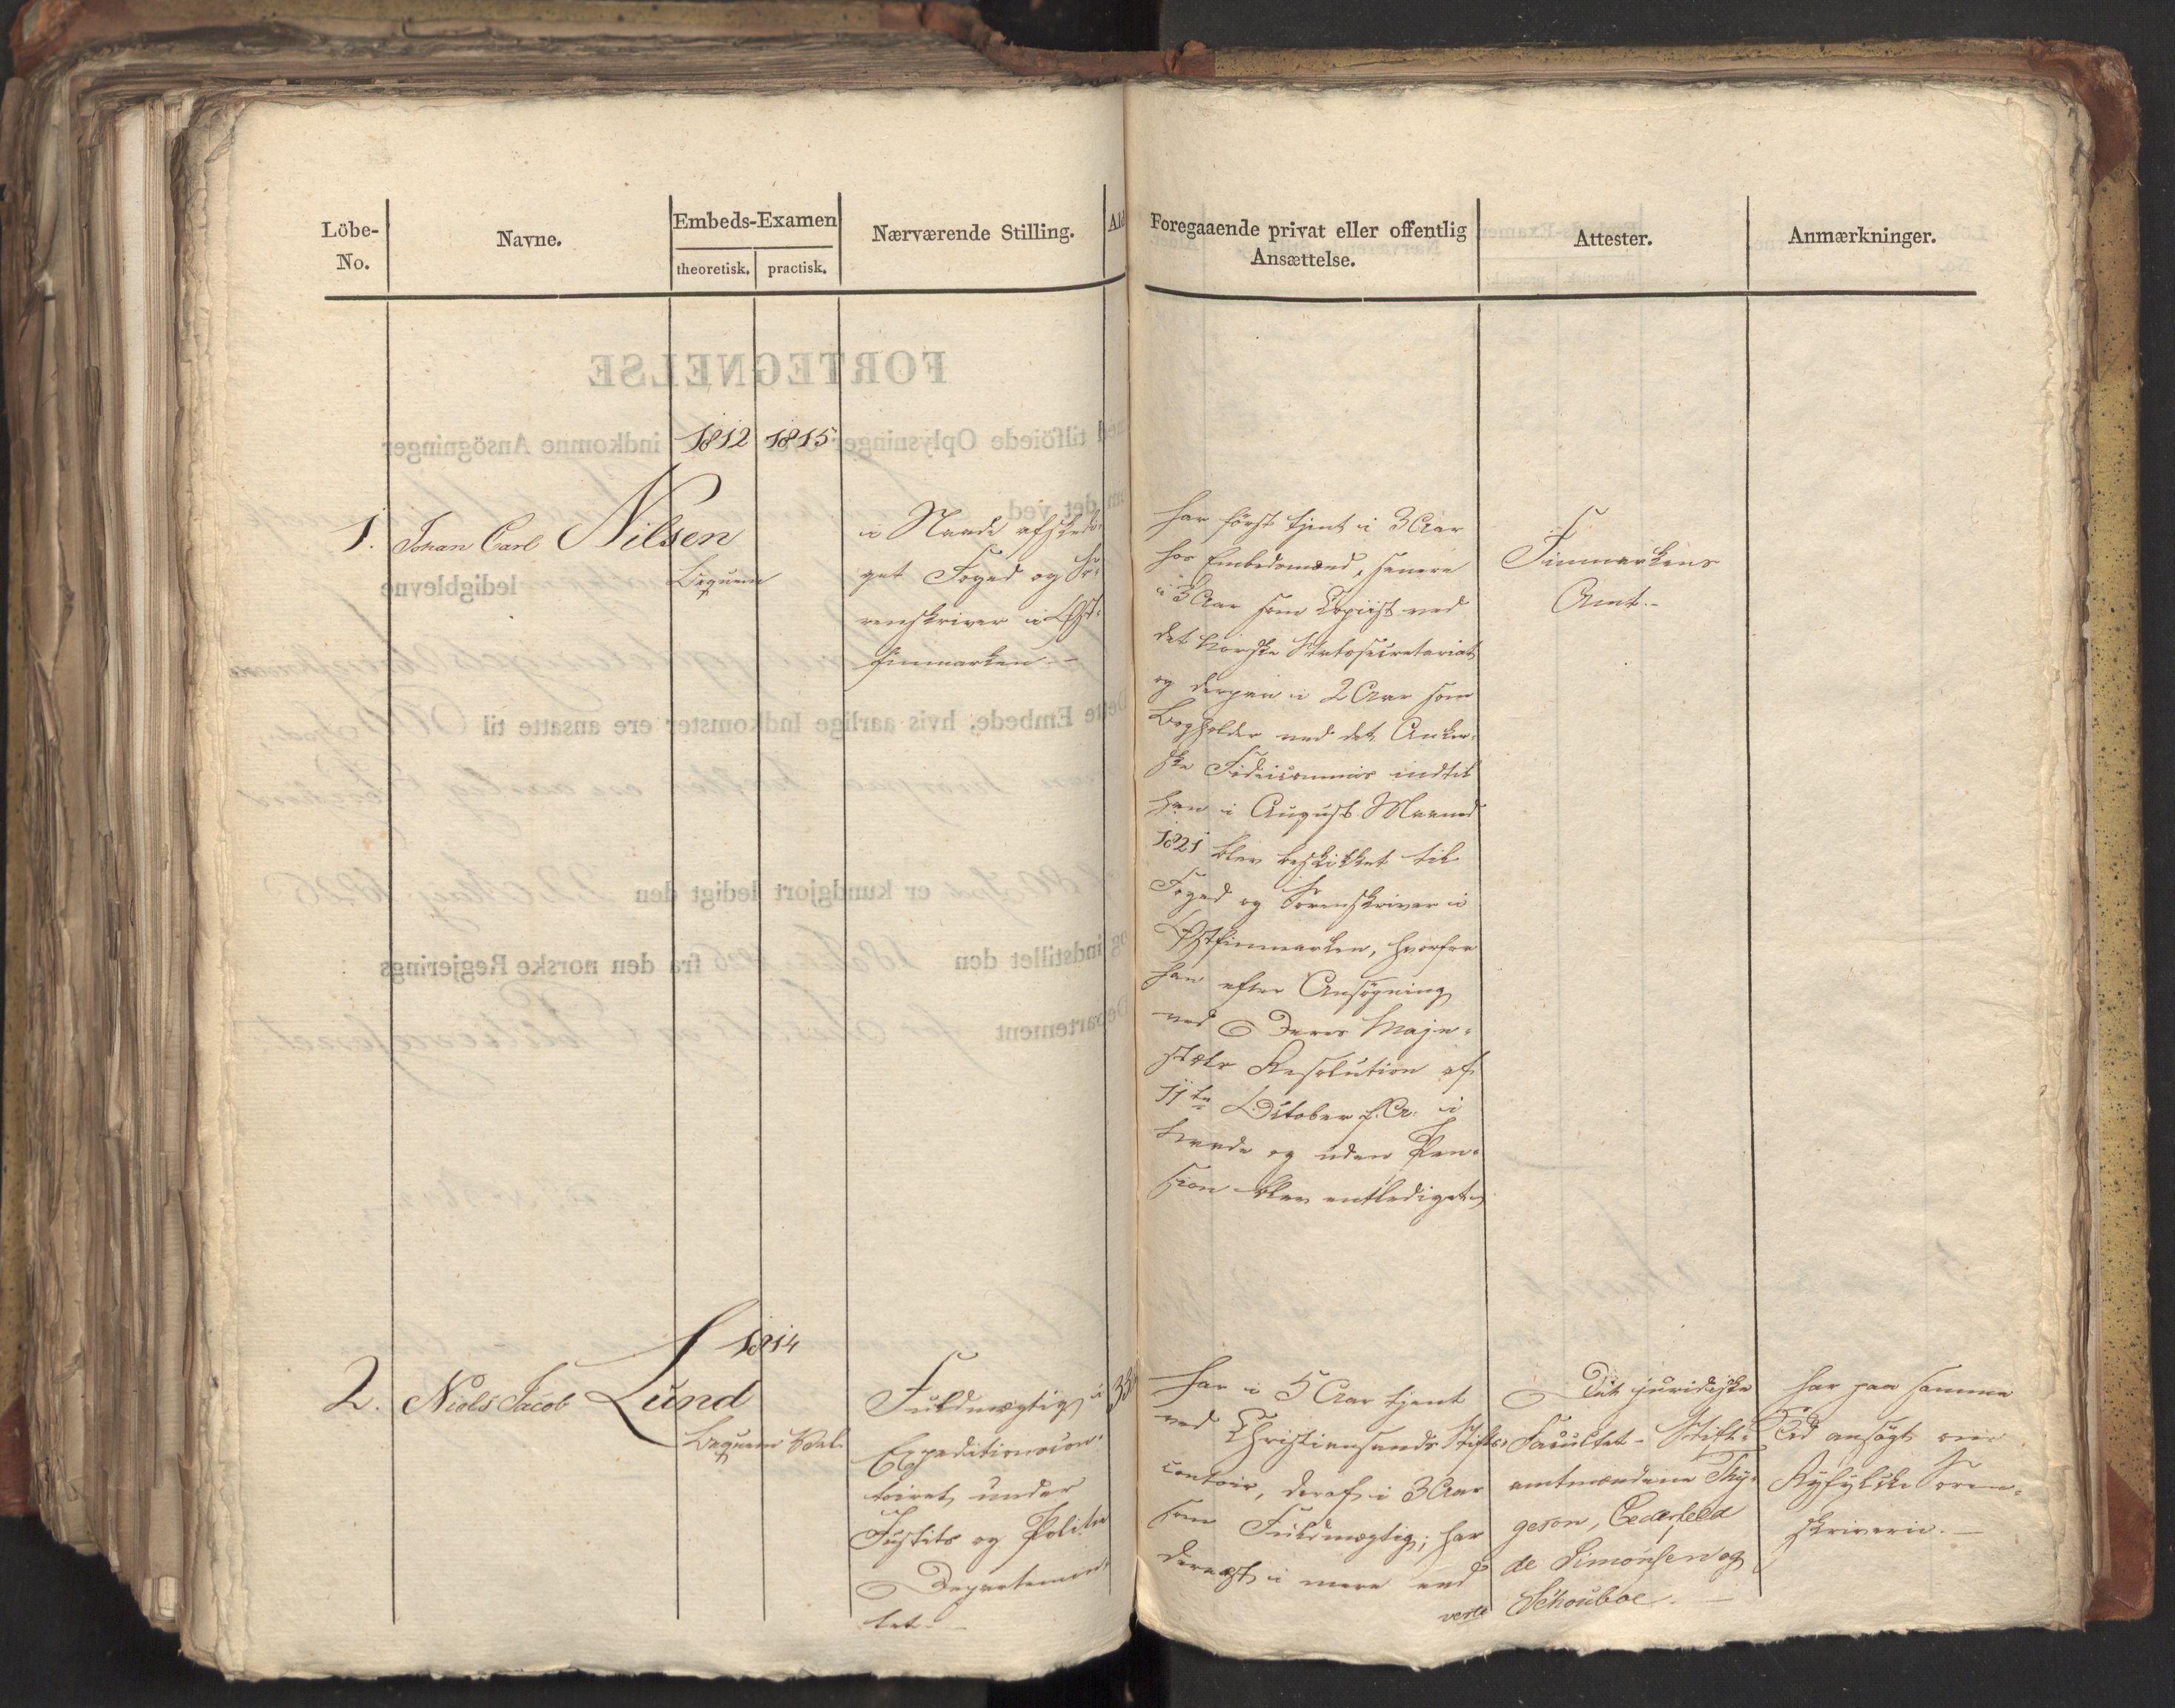 Löbe-
No.
Navne.
Embeds-Examen
theoretisk. practisk.
Nærværende Stilling.
Foregaaende privat eller offentlig
Ansættelse.
Attester.
Anmærkninger.
1812 1815
1. Johan Carl Nilsen
Beqvem
i Naade afskedi-
get Foged og So-
renskriver i Øst-
finmarken. -
har först tjent i 3 Aar
hos Embedsmænd, senere
i 3 Aar som Copiist ved
det norske Statssecretariat
og derpaa i 2 Aar som
Bogholder ved det Anker-
ske Fideicommis indtil
han i August Maaned
1821 blev beskikket til
Foged og Sorenskriver i
Østfinmarken, hvorfra
han efter Ansögning
ved Deres Maje-
stæts Resolution af
11te October f. A. i
Naade og uden Pen-
sion blev entlediget
Finmarkens
Amt. -
1814
2. Niels Jacob Lund
Beqvem Vel
Fuldmægtig i
Expeditionscon-
toiret under
Justits og Politie
Departemen-
tet. -
har i 5 Aar tjent
ved Christiansands Stifts-
contoir, deraf i 3 Aar
som Fuldmægtig; har
dernæst i mere end
verte
Det juridiske
Facultet - Stift-
amtmændene Thy-
geson, Cederfeld
de Simonsen og
Schouboe. -
har paa samme
Tid ansögt om
Ryfylke Soren-
skriverie. -
FORTEGNELSE
med tilföiede Oplysninger over indkomne Ansögninger
om det ved
ledigblevne
Dette Embede, hvis aarlige Indkomster ere ansatte til
er kundgjort ledigt den 22 May 1826
og indstillet den fra den norske Regjerings
Departement for Justits og Politievæsenet